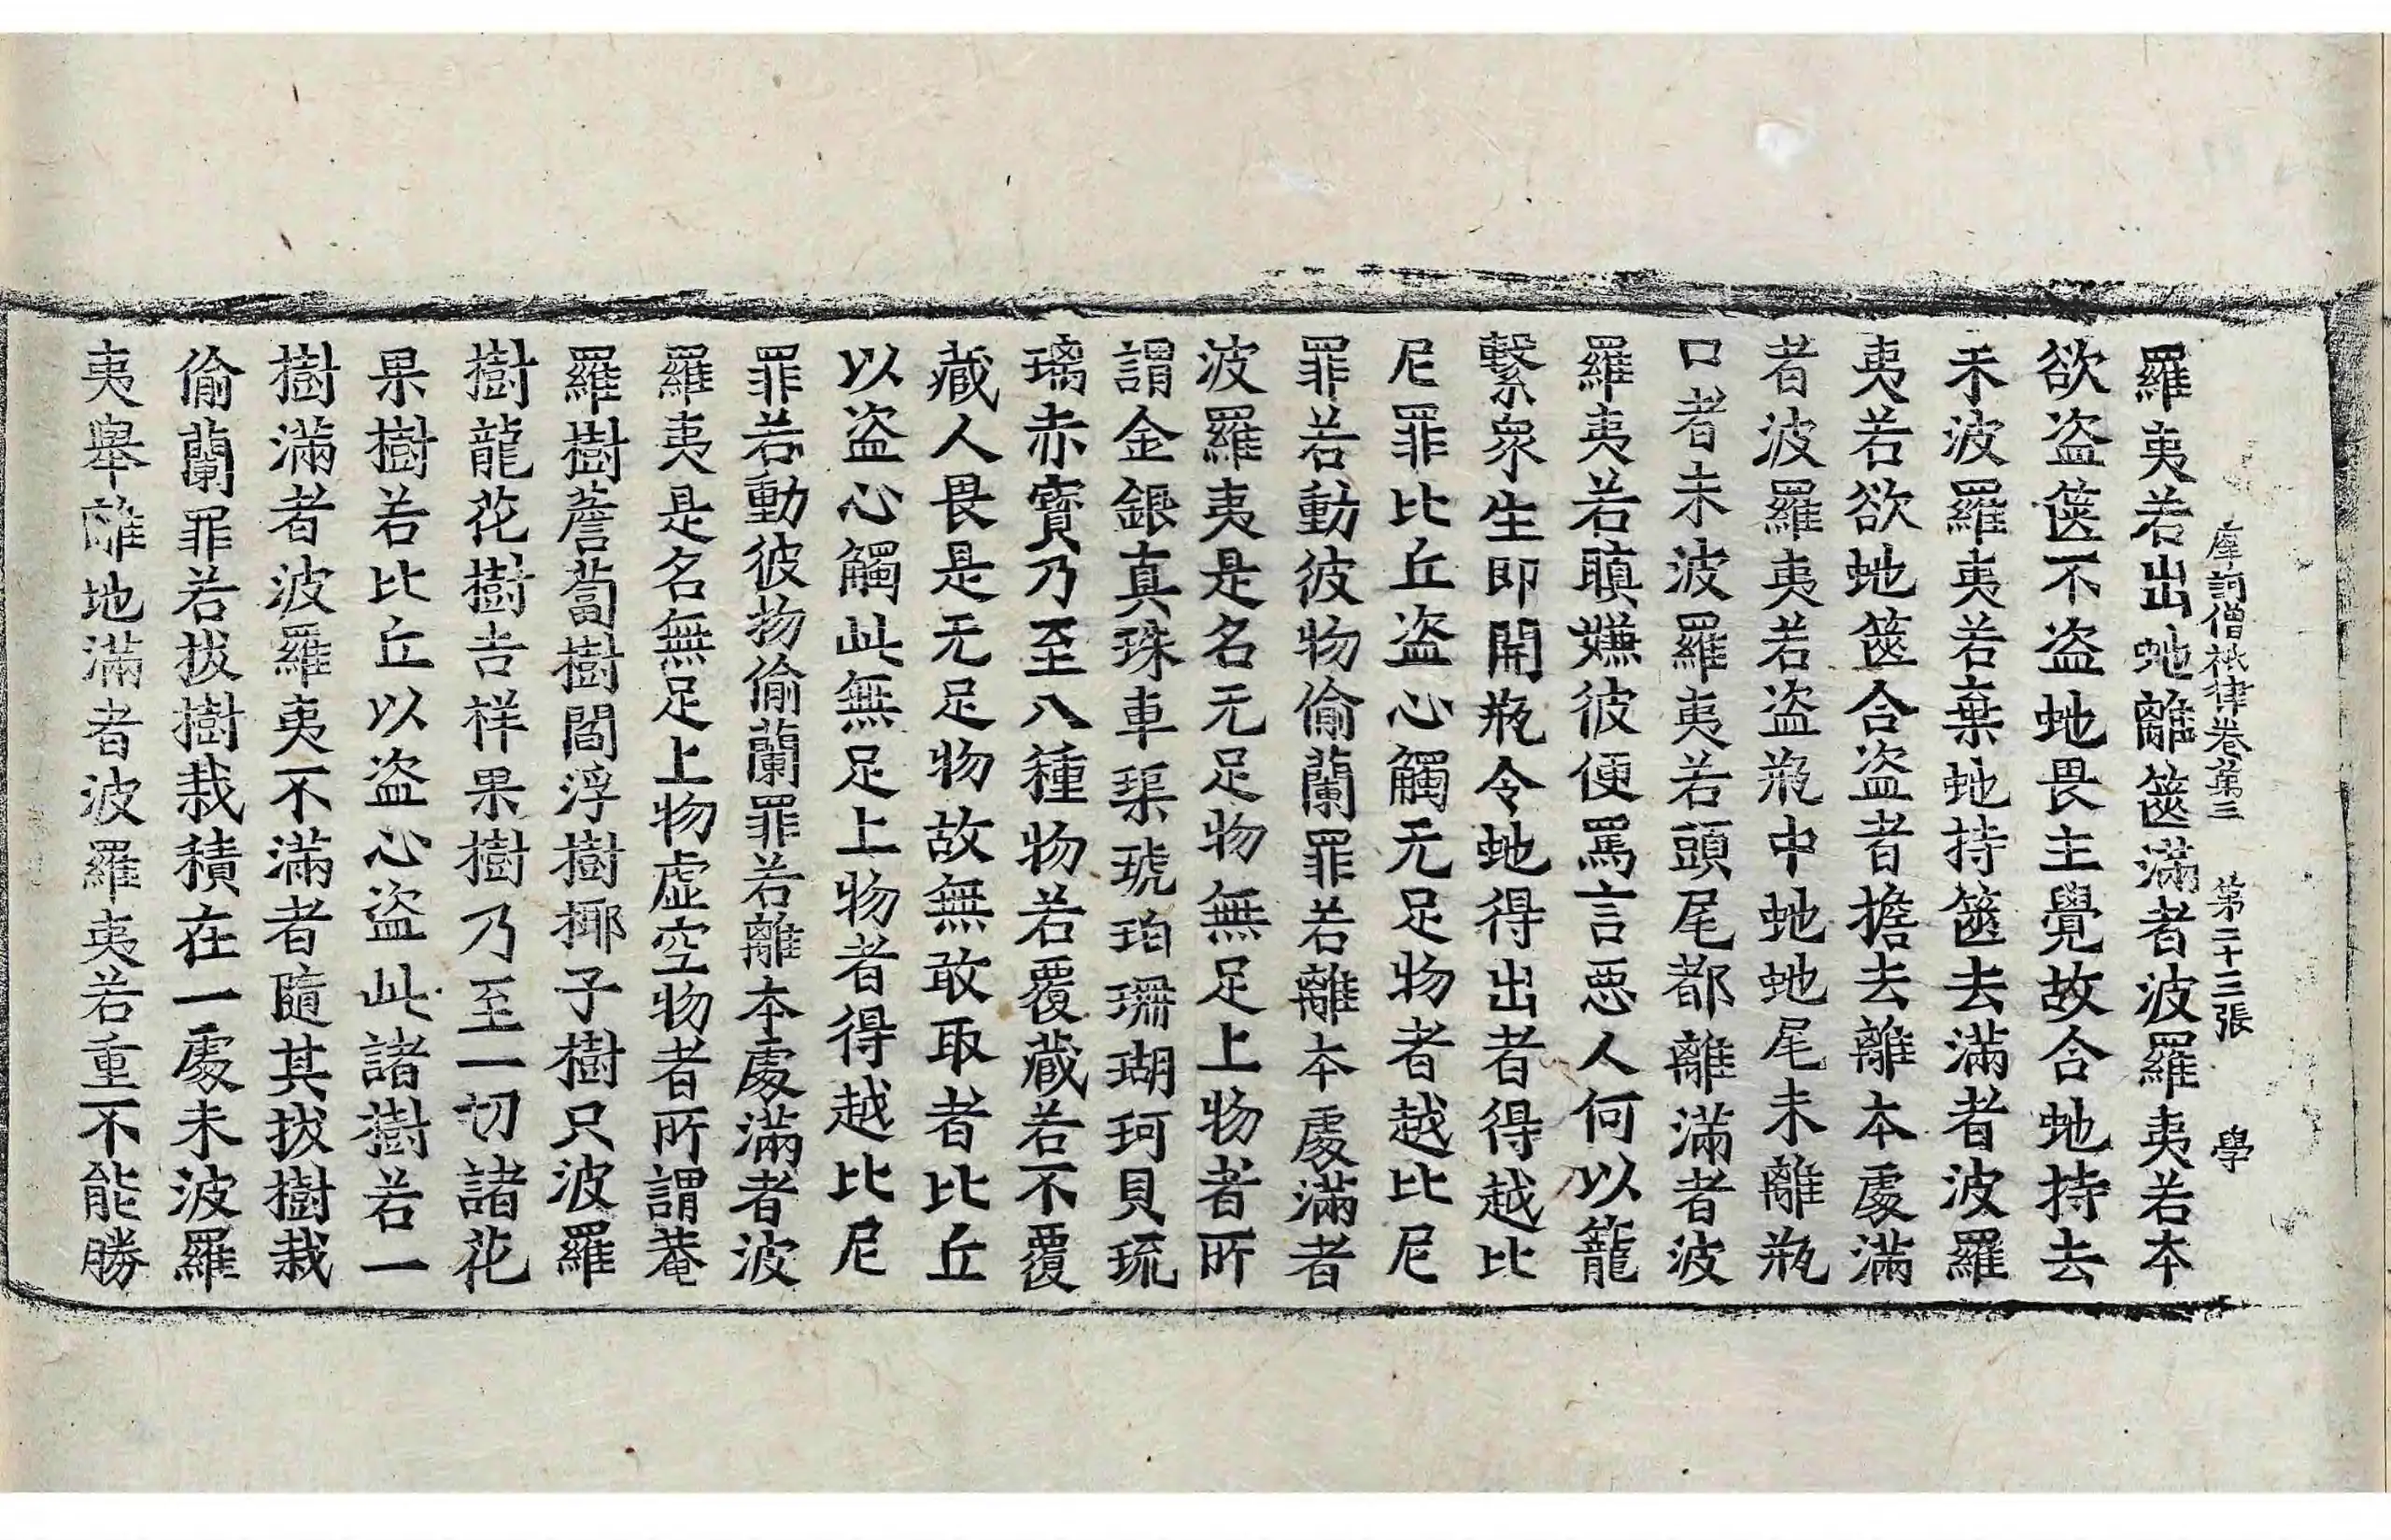 摩訶僧祇律卷第三 第二十三張 學
羅夷若出虵離篋滿者波羅夷若本
欲盜篋不盜虵畏主覺故合虵持去
未波羅夷若棄虵持篋去滿者波羅
夷若欲虵篋合盜者擔去離本處滿
者波羅夷若盜瓶中虵虵尾未離瓶
口者未波羅夷若頭尾都離滿者波
羅夷若瞋嫌彼便罵言惡人何以籠
繫衆生即開瓶令虵得出者得越比
尼罪比丘盜心觸无足物者越比尼
罪若動彼物偷蘭罪若離本處滿者
波羅夷是名无足物無足上物者所
謂金銀真珠車𤦲琥珀珊瑚珂貝琉
璃赤寶乃至八種物若覆藏若不覆
藏人畏是无足物故無敢取者比丘
以盜心觸此無足上物者得越比尼
罪若動彼物偷蘭罪若離本處滿者波
羅夷是名無足上物虛空物者所謂菴
羅樹薝蔔樹閻浮樹揶子樹只波羅
樹龍花樹吉祥果樹乃至一切諸花
果樹若比丘以盜心盜此諸樹若一
樹滿者波羅夷不滿者隨其拔樹栽
偷蘭罪若拔樹栽積在一處未波羅
夷舉離地滿者波羅夷若重不能勝